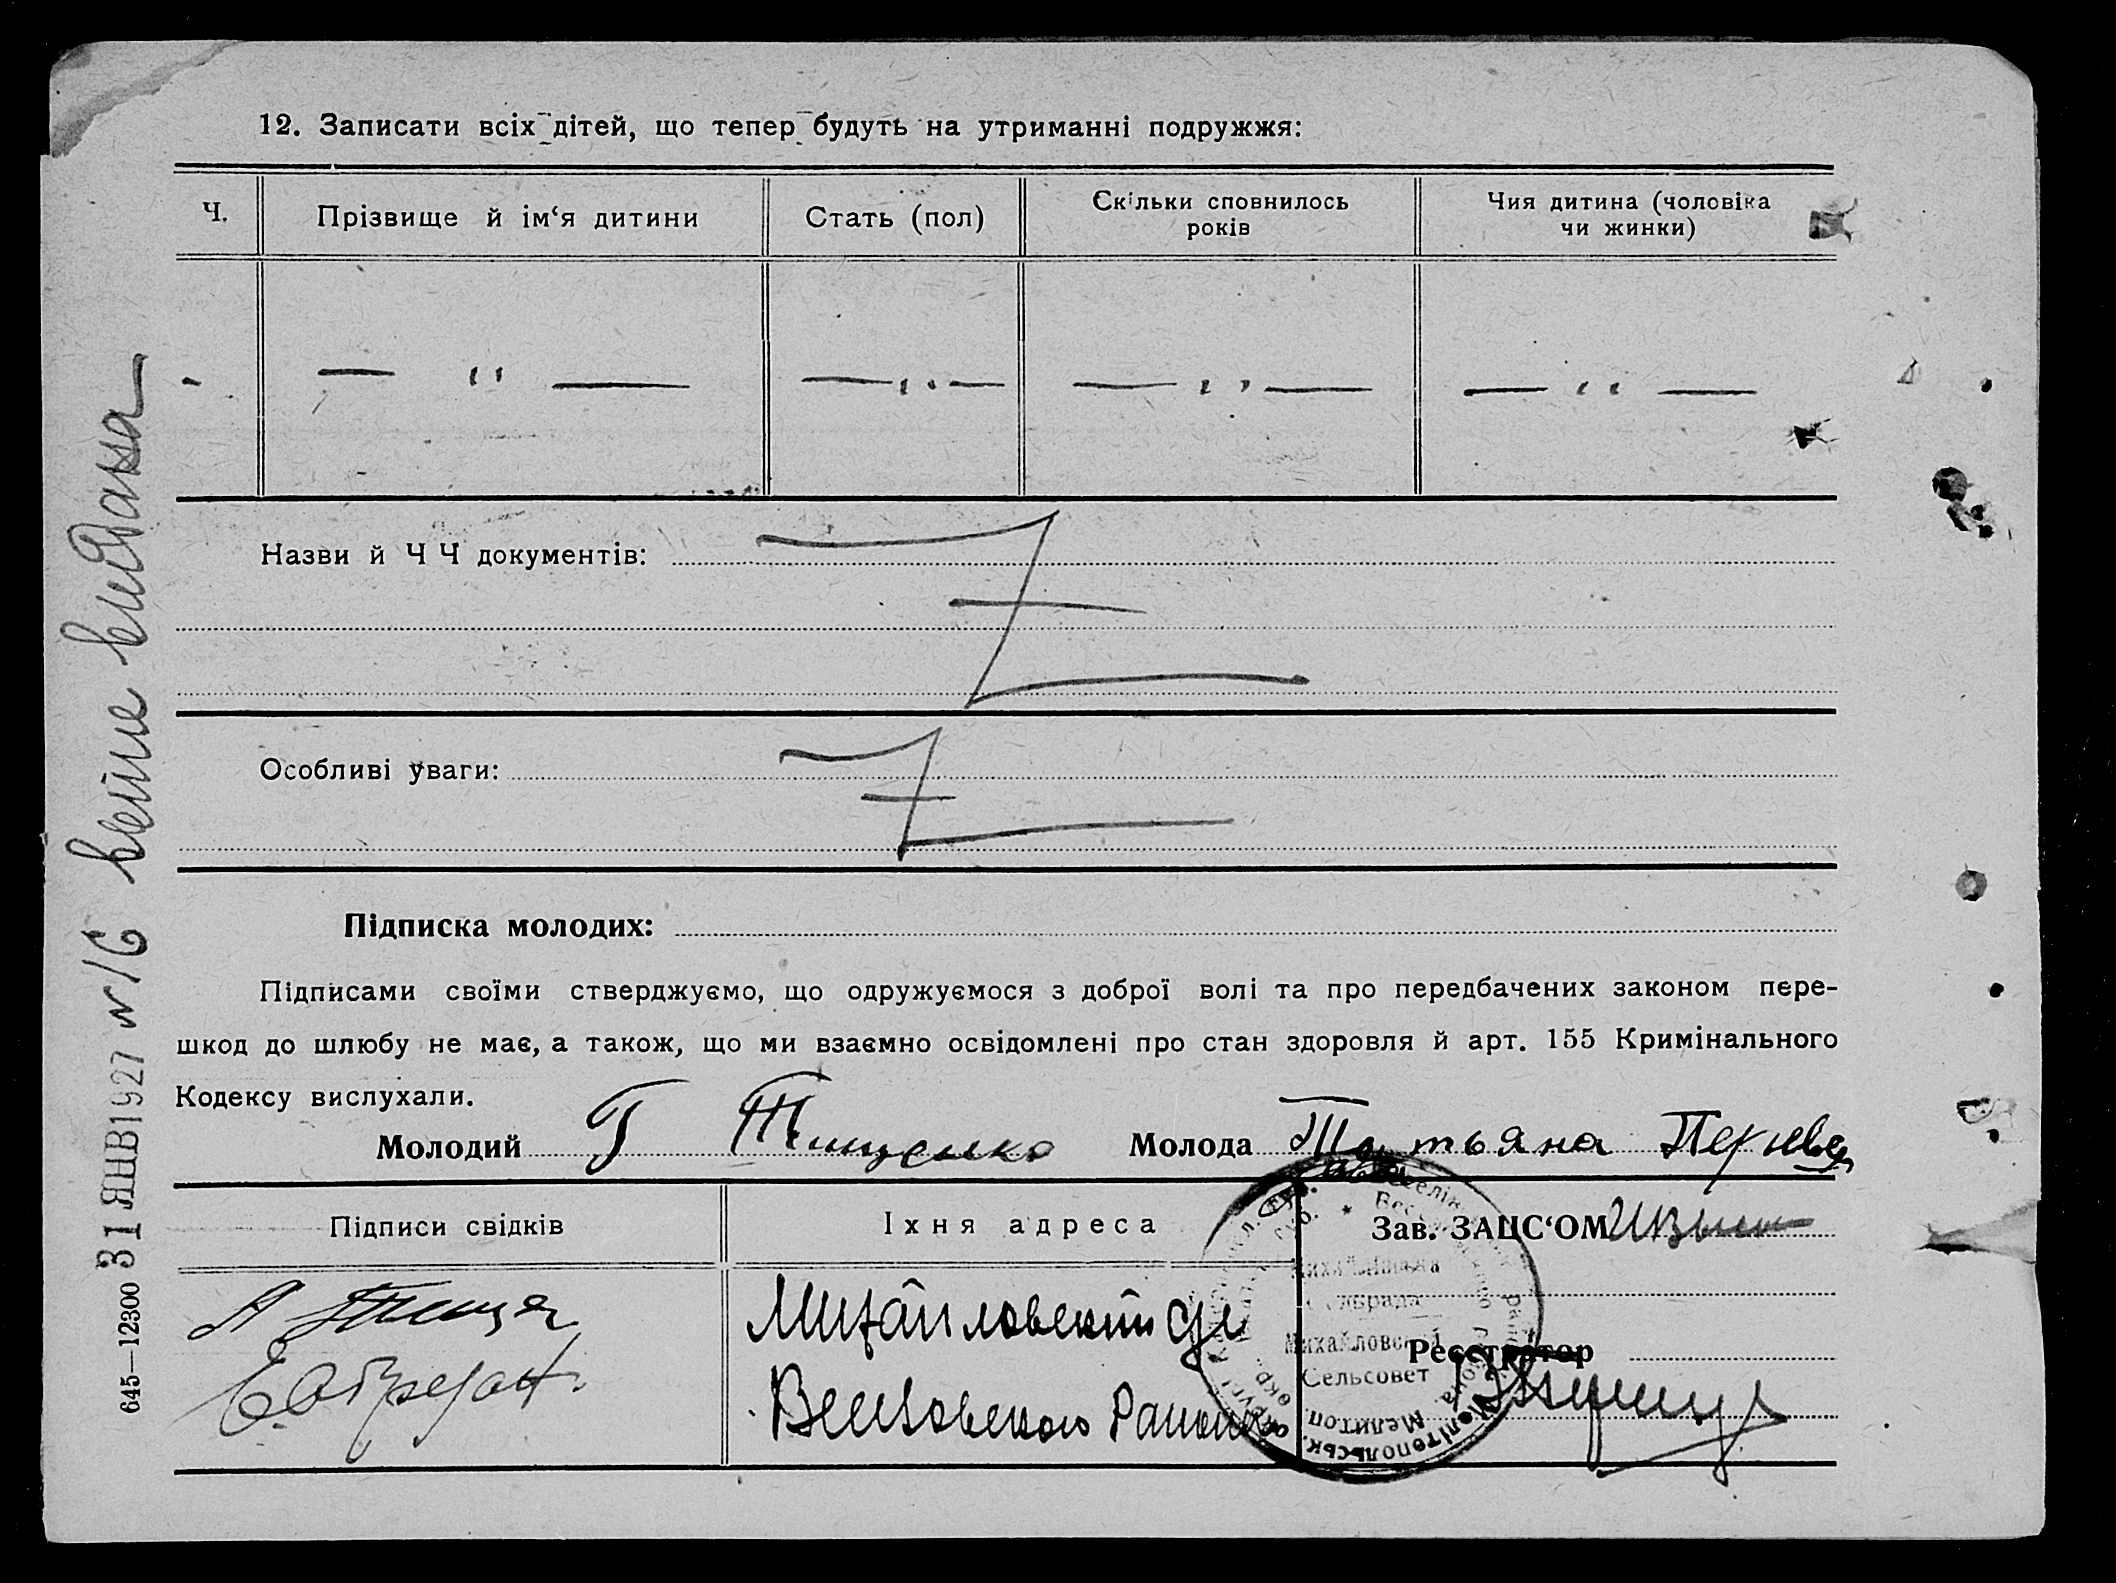 12. Записати всіх дітей, що тепер будуть на утриманні подружжя:
Ч.
Прізвище й ім‘я дитини
Стать (пол)
Скільки сповнилось
років
Чия дитина (чоловіка
чи жинки)
— " —
— " —
— " —
— " —
Назви й Ч Ч документів:
Особливі уваги:
Підписка молодих:
Підписами своїми стверджуємо, що одружуємося з доброї волі та про передбачених законом пере-
шкод до шлюбу не має, а також, що ми взаємно освідомлені про стан здоровля й арт. 155 Кримінального
Кодексу вислухали.
Молодий Г Тищенко Молода Татьяна
Підписи свідків
Їхня адреса
Зав. ЗАЦС‘ОМ
Михайловской
Района
Реєстратор
Михайлівська
Сельрада
Михайловский
Сельсовет
Мелитоп.
Мелітопольськ.
31 ЯНВ 1927 N 16
видана
645—12300